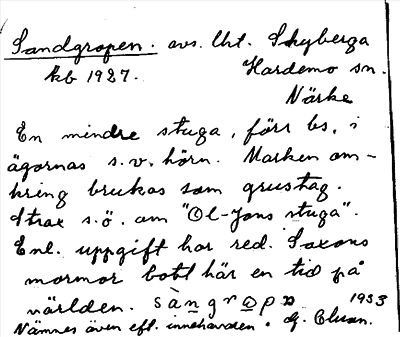 Sandgropen. avs. lht. Skyberga
kb 1927. Hardemo sn.
Närke
En mindre stuga, förr bs, i
ägornas s.v. hörn. Marken om-
kring brukas som grustag.
Strax s.ö. om "Ol-Jons stuga".
Enl. uppgift har red. Saxons
mormor bott här en tid på
världen. sàngropn 1933
Nämnes även eft. innehavden.